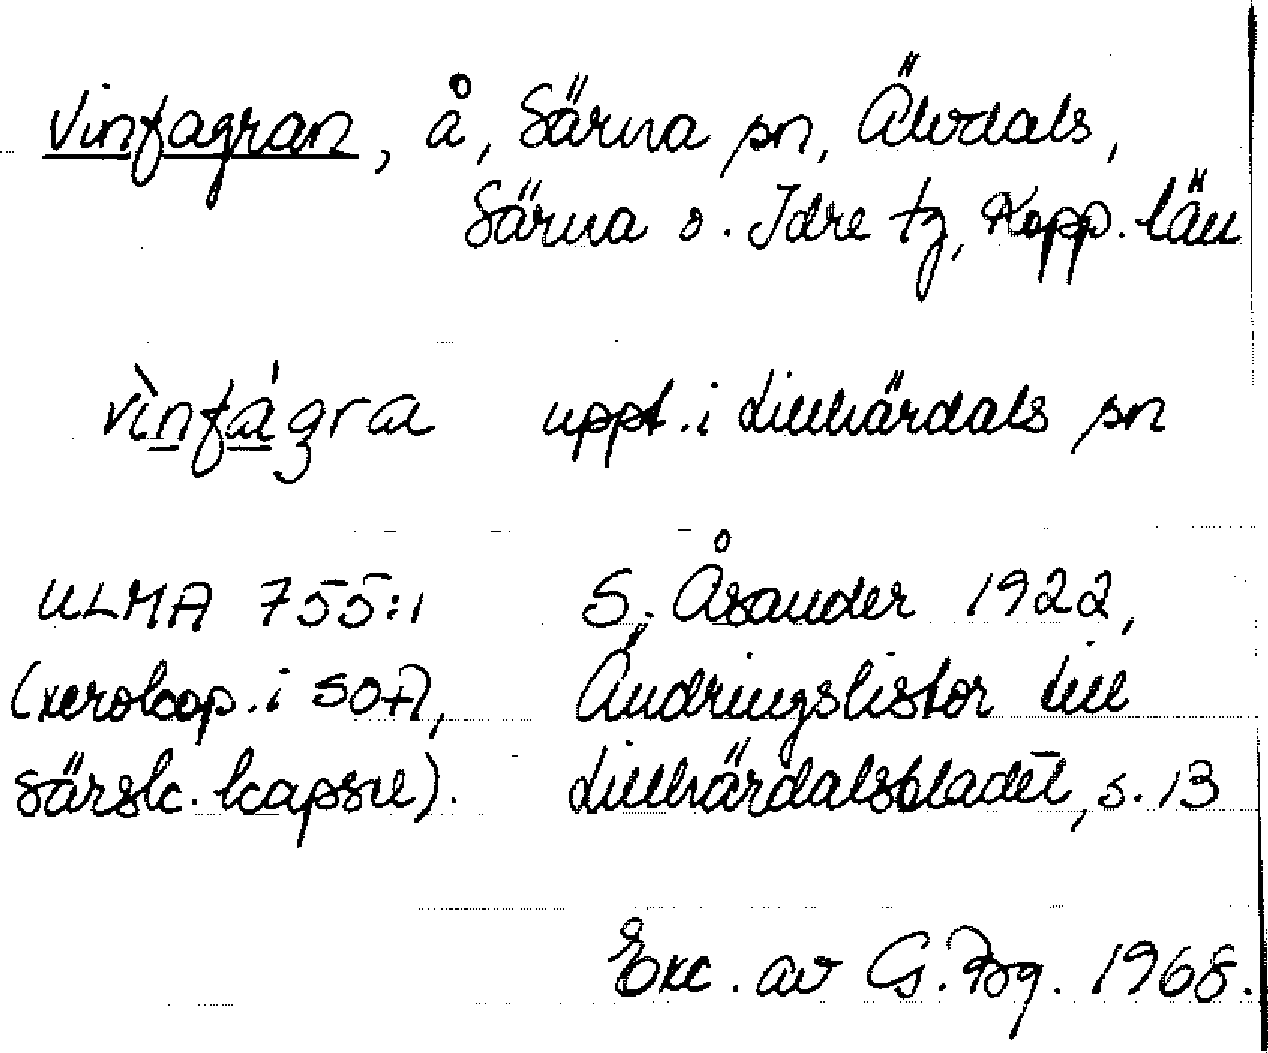 Vinfagran, å, Särna sn, Älvdals,
Särna o. Idre tg, Kopp. län
vìnfágra uppt. i Lillhärdals sn
ULMA 755:1 S. Åsander 1922,
(xerokop. i SOA, Ändringslistor till
särsk. kapsel). Lillhärdalsbladet, s. 13
Exc. av G. 1968.